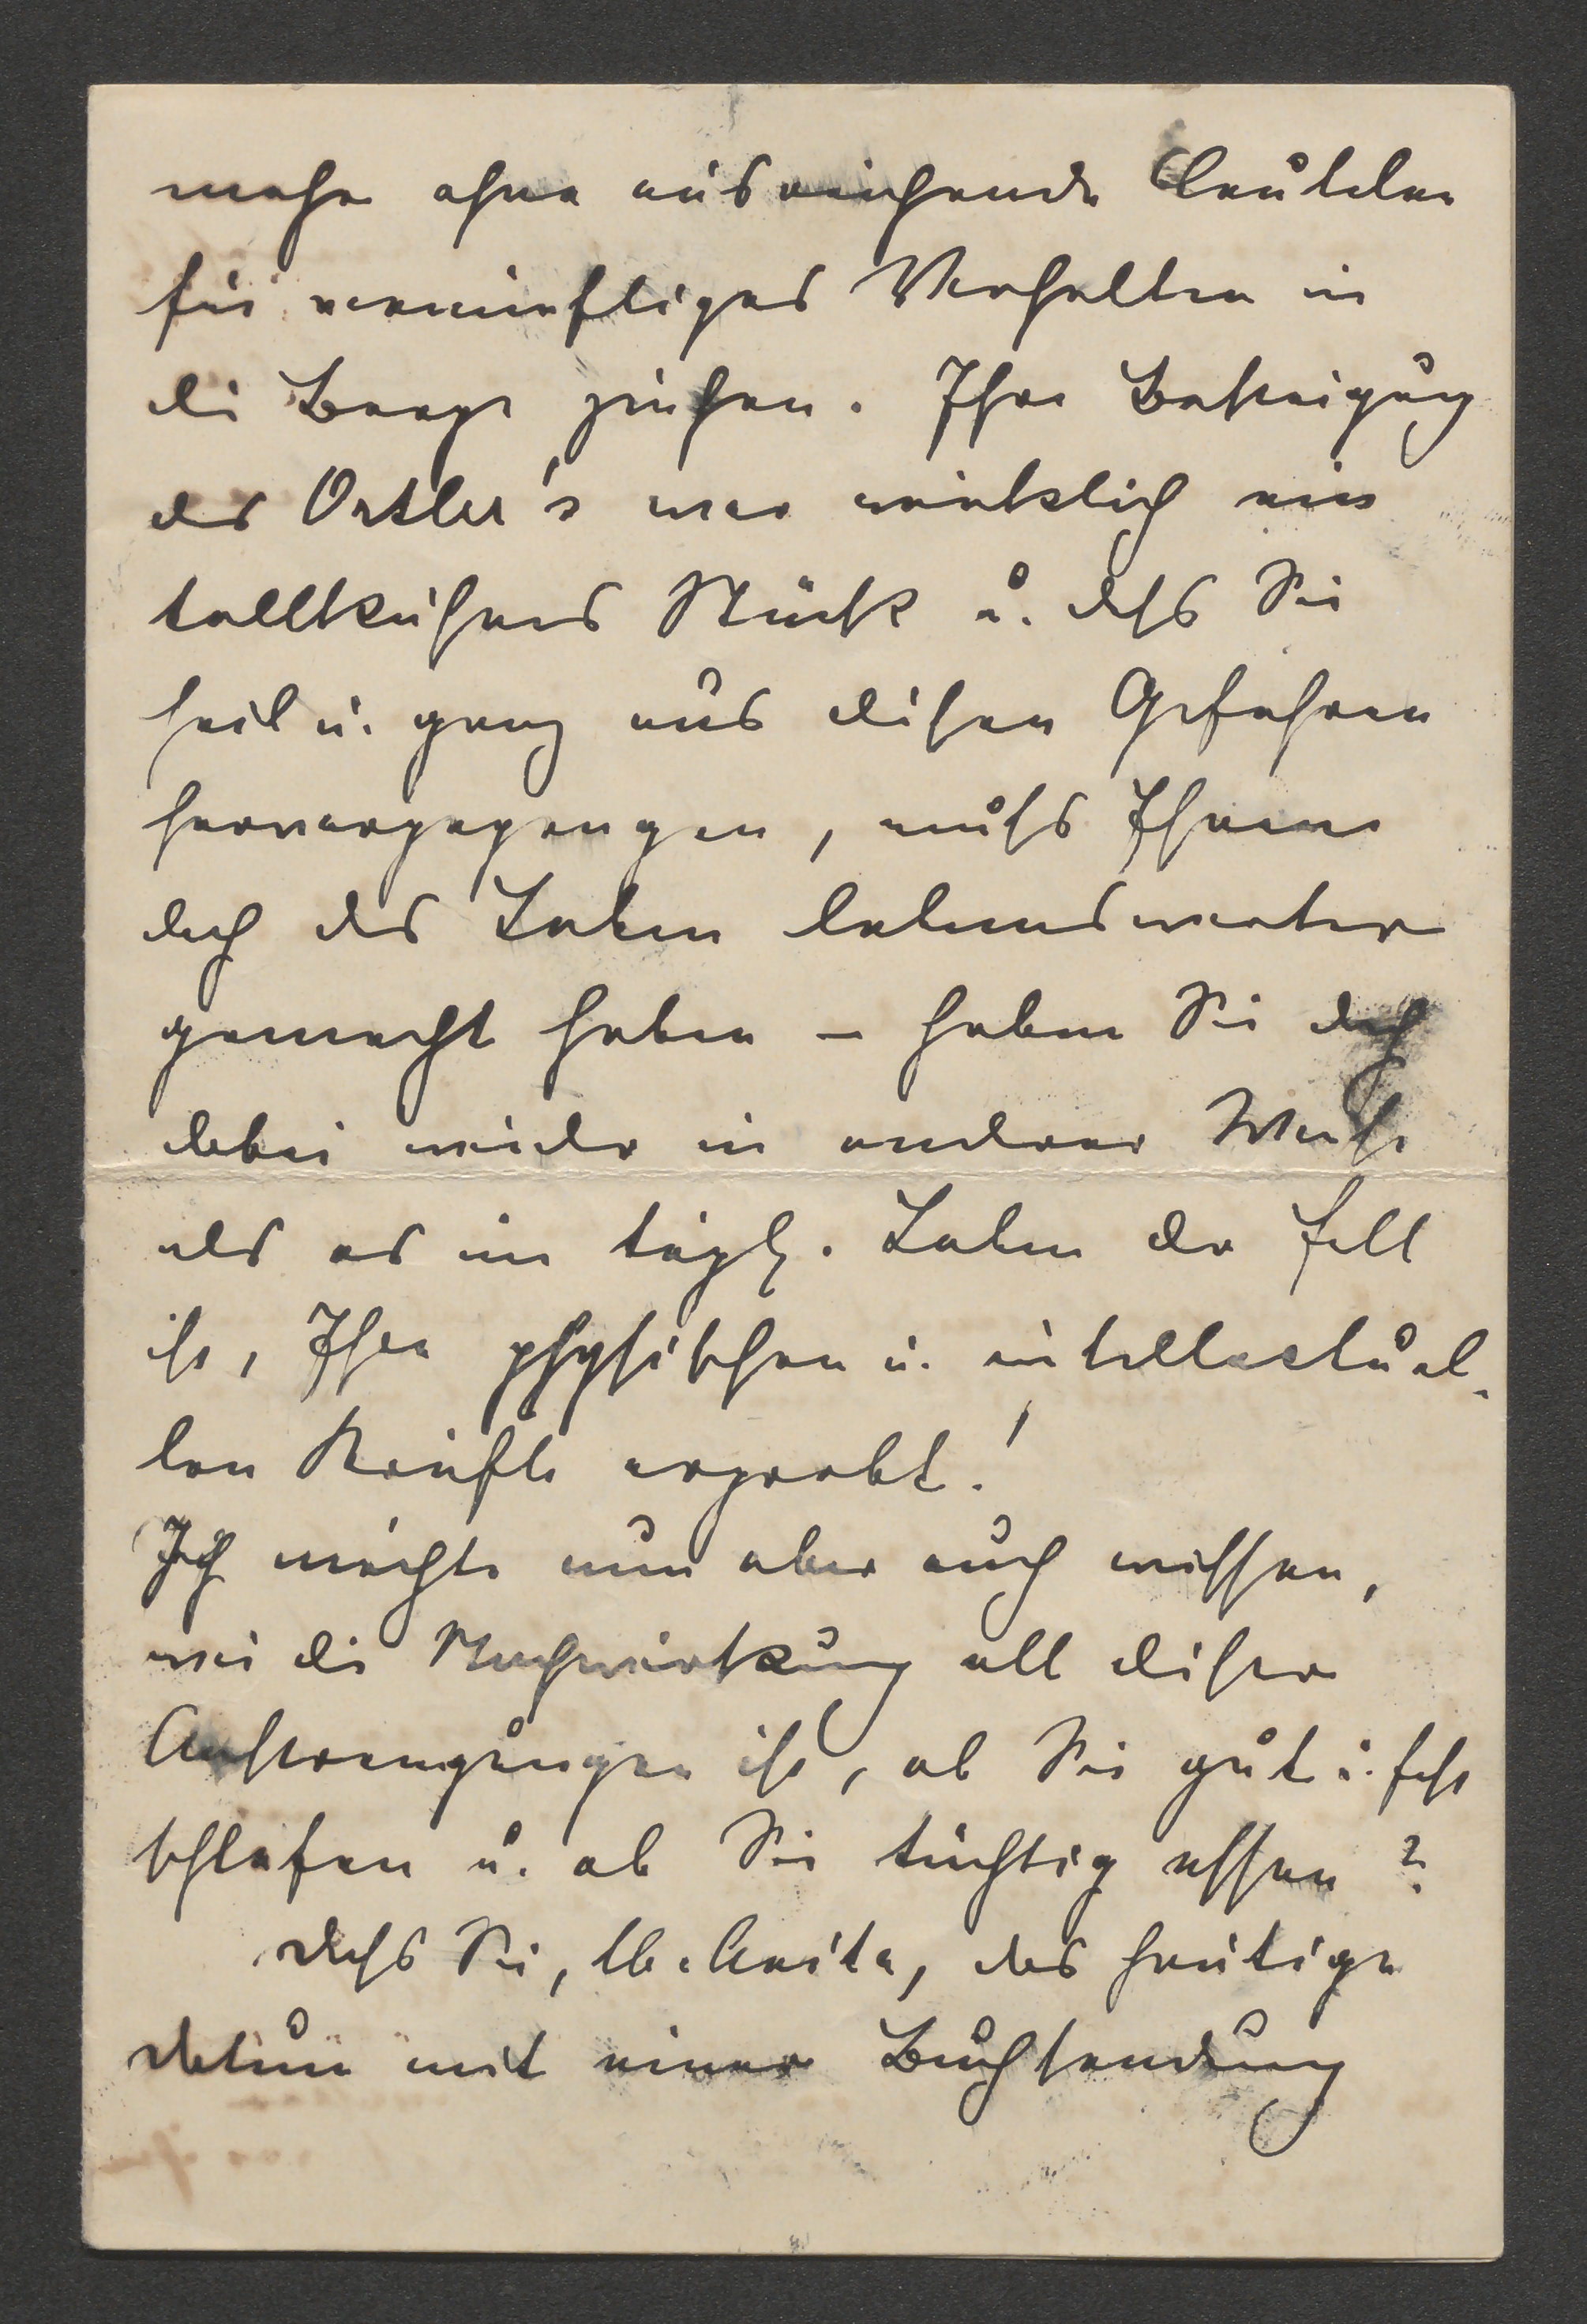 mehr ohne ausreichende Cautelen
für vernünftiges Verhalten in
die Berge ziehen. Ihre Besteigung
des Ortler's war wirklich ein
tollkühnes Stück u. daß Sie
heil u. ganz aus diesen Gefahren
hervorgegangen, muß Ihnen
doch das Leben lebenswerter
gemacht haben – haben Sie doch
dabei wieder in anderer Weise
als es im tägl. Leben der Fall
ist, Ihre physischen u. intellectuel-
len Kräfte erprobt!
Ich möchte nun aber auch wissen,
wie die Nachwirkung all dieser
Anstrengungen ist, ob Sie gut u. fest
schlafen u. ob Sie tüchtig essen?
Daß Sie, lb. Anita, das heutige
Datum mit einer Buchsendung